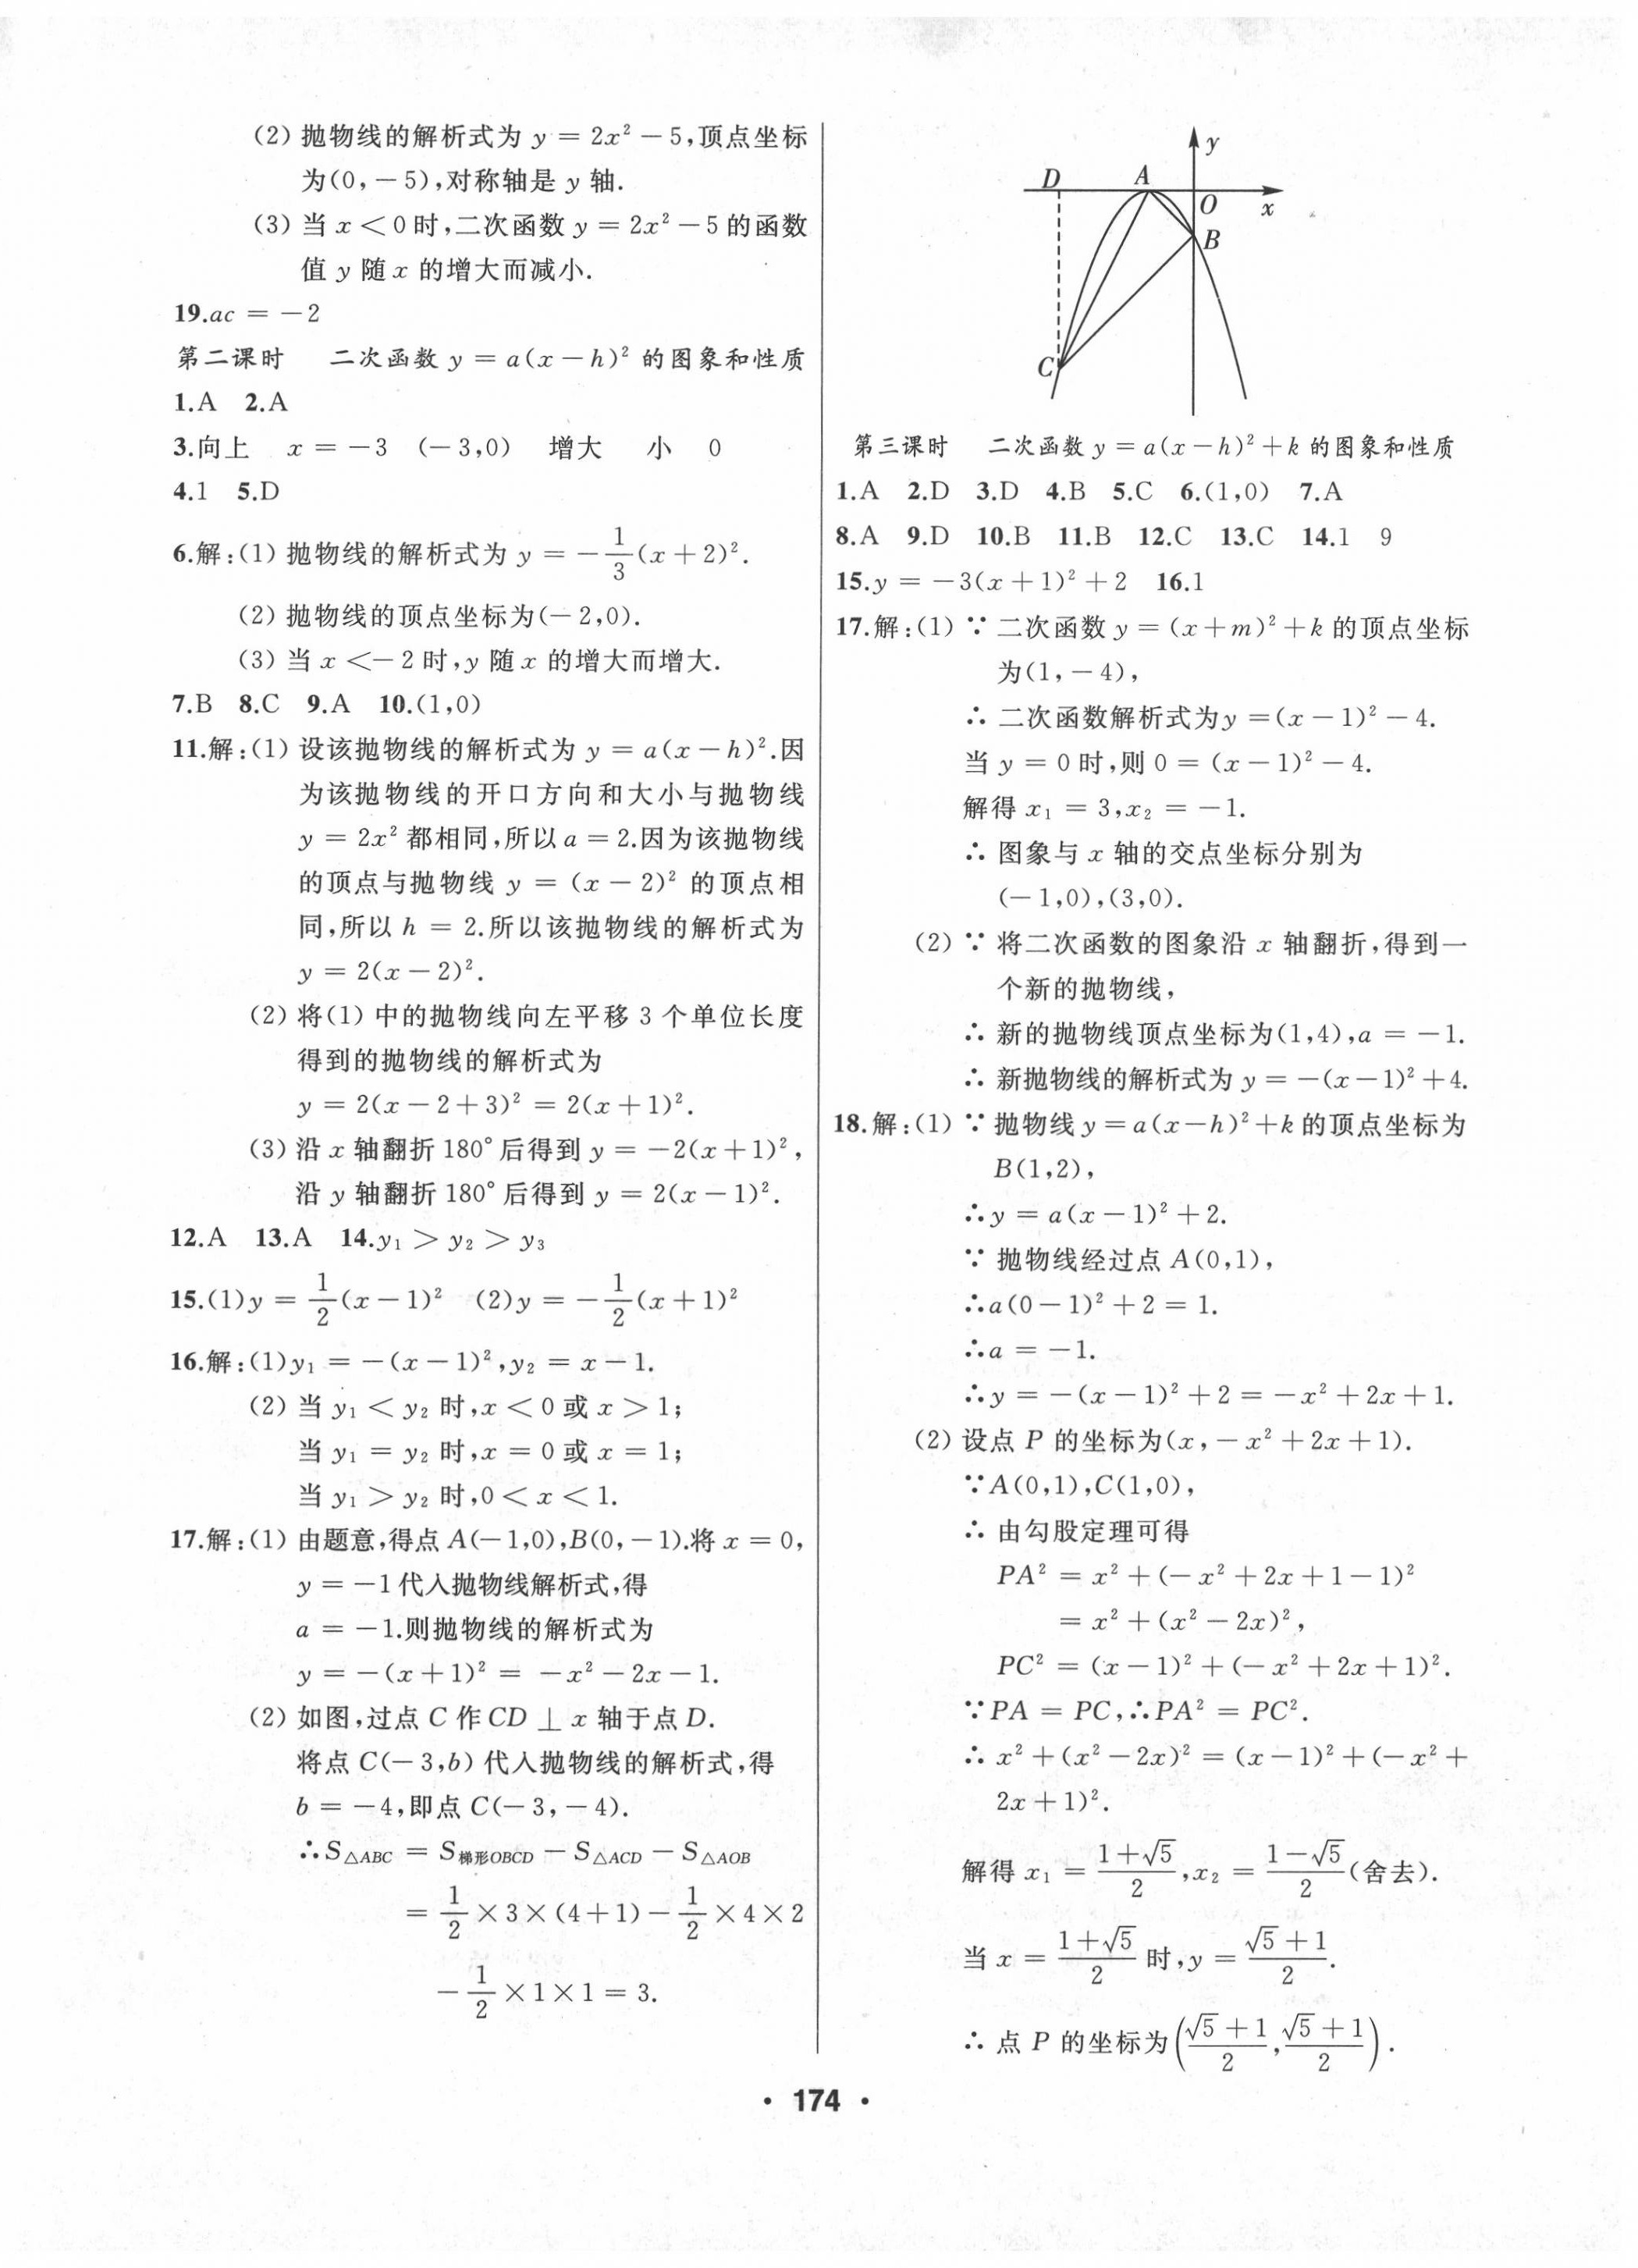 (2) 抛物线的解析式为 y = 2x² − 5,顶点坐标
为(0,−5),对称轴是 y 轴.
(3) 当 x < 0 时,二次函数 y = 2x² − 5 的函数
值 y 随 x 的增大而减小.
19.ac = −2
第二课时 二次函数 y = a(x − h)² 的图象和性质
1.A 2.A
3.向上 x = −3 (−3,0) 增大 小 0
4.1 5.D
6.解:(1) 抛物线的解析式为 y = −1/3(x + 2)².
(2) 抛物线的顶点坐标为(−2,0).
(3) 当 x <− 2 时,y 随 x 的增大而增大.
7.B 8.C 9.A 10.(1,0)
11.解:(1) 设该抛物线的解析式为 y = a(x − h)².因
为该抛物线的开口方向和大小与抛物线
y = 2x² 都相同,所以 a = 2.因为该抛物线
的顶点与抛物线 y = (x − 2)² 的顶点相
同,所以 h = 2.所以该抛物线的解析式为
y = 2(x − 2)².
(2) 将(1) 中的抛物线向左平移 3 个单位长度
得到的抛物线的解析式为
y = 2(x − 2 + 3)² = 2(x + 1)².
(3) 沿 x 轴翻折 180° 后得到 y = −2(x + 1)²,
沿 y 轴翻折 180° 后得到 y = 2(x − 1)².
12.A 13.A 14.y₁ > y₂ > y₃
15.(1)y = 1/2(x − 1)² (2)y = −1/2(x + 1)²
16.解:(1)y₁ = −(x − 1)²,y₂ = x − 1.
(2) 当 y₁ < y₂ 时,x < 0 或 x > 1;
当 y₁ = y₂ 时,x = 0 或 x = 1;
当 y₁ > y₂ 时,0 < x < 1.
17.解:(1) 由题意,得点 A(−1,0),B(0,−1).将 x = 0,
y = −1 代入抛物线解析式,得
a = −1.则抛物线的解析式为
y = −(x + 1)² = −x² − 2x − 1.
(2) 如图,过点 C 作 CD ⊥ x 轴于点 D.
将点 C(−3,b) 代入抛物线的解析式,得
b = −4,即点 C(−3,−4).
∴S△ABC = S梯形OBCD − S△ACD − S△AOB
= 1/2 × 3 × (4 + 1) − 1/2 × 4 × 2
− 1/2 × 1 × 1 = 3.
y
D A
O x
B
C
第三课时 二次函数 y = a(x − h)² + k 的图象和性质
1.A 2.D 3.D 4.B 5.C 6.(1,0) 7.A
8.A 9.D 10.B 11.B 12.C 13.C 14.1 9
15.y = −3(x + 1)² + 2 16.1
17.解:(1) ∵ 二次函数 y = (x + m)² + k 的顶点坐标
为(1,−4),
∴ 二次函数解析式为y = (x − 1)² − 4.
当 y = 0 时,则 0 = (x − 1)² − 4.
解得 x₁ = 3,x₂ = −1.
∴ 图象与 x 轴的交点坐标分别为
(−1,0),(3,0).
(2) ∵ 将二次函数的图象沿 x 轴翻折,得到一
个新的抛物线,
∴ 新的抛物线顶点坐标为(1,4),a = −1.
∴ 新抛物线的解析式为 y = −(x − 1)² + 4.
18.解:(1) ∵ 抛物线 y = a(x − h)² + k 的顶点坐标为
B(1,2),
∴y = a(x − 1)² + 2.
∵ 抛物线经过点 A(0,1),
∴a(0 − 1)² + 2 = 1.
∴a = −1.
∴y = −(x − 1)² + 2 = −x² + 2x + 1.
(2) 设点 P 的坐标为(x,−x² + 2x + 1).
∵A(0,1),C(1,0),
∴ 由勾股定理可得
PA² = x² + (−x² + 2x + 1 − 1)²
= x² + (x² − 2x)²,
PC² = (x − 1)² + (−x² + 2x + 1)².
∵PA = PC,∴PA² = PC².
∴ x² + (x² − 2x)² = (x − 1)² + (−x² +
2x + 1)².
解得 x₁ = (1+√5)/2,x₂ = (1−√5)/2(舍去).
当 x = (1+√5)/2 时,y = (√5+1)/2.
∴ 点 P 的坐标为((√5+1)/2,(√5+1)/2).
· 174 ·